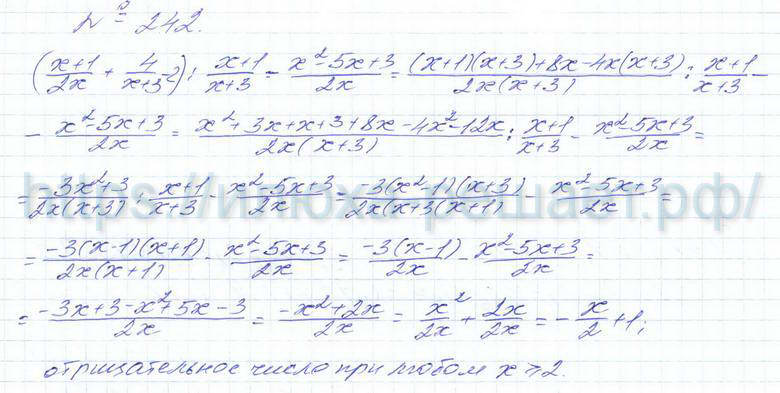 № 242.
(x+1/2x + 4/x+3 - 2) : x+1/x+3 - x²-5x+3/2x = (x+1)(x+3)+8x-4x(x+3)/2x(x+3) : x+1/x+3 -
- x²-5x+3/2x = x²+3x+x+3+8x-4x²-12x/2x(x+3) : x+1/x+3 - x²-5x+3/2x =
= -3x²+3/2x(x+3) : x+1/x+3 - x²-5x+3/2x = -3(x²-1)(x+3)/2x(x+3(x+1) - x²-5x+3/2x =
= -3(x-1)(x+1)/2x(x+1) - x²-5x+3/2x = -3(x-1)/2x - x²-5x+3/2x =
= -3x+3-x²+5x-3/2x = -x²+2x/2x = x²/2x + 2x/2x = -x/2 + 1;
отрицательное число при любом x > 2.